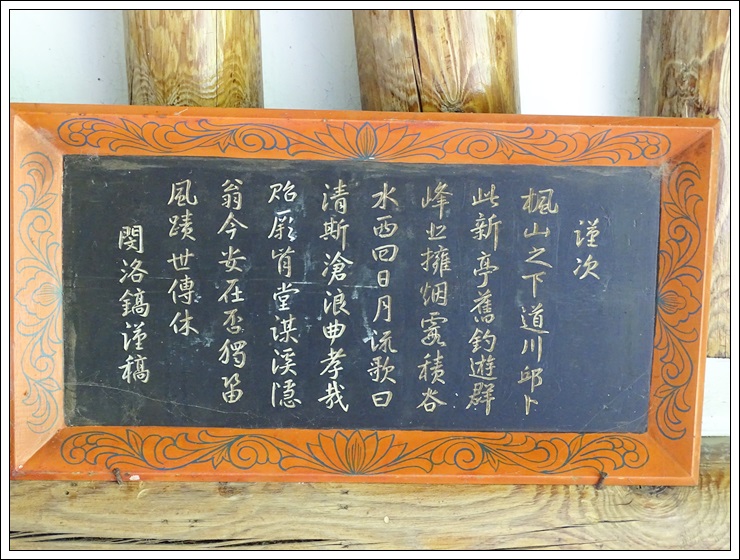 謹次
楓山之下道川邱卜
此新亭舊釣遊群
峰北擁烟霞積谷
水西回日月流歌曰
清斯滄浪曲孝哉
貽厥肯堂謀溪隱
翁今安在否獨留
風蹟世傳休
閔洛鎬謹稿